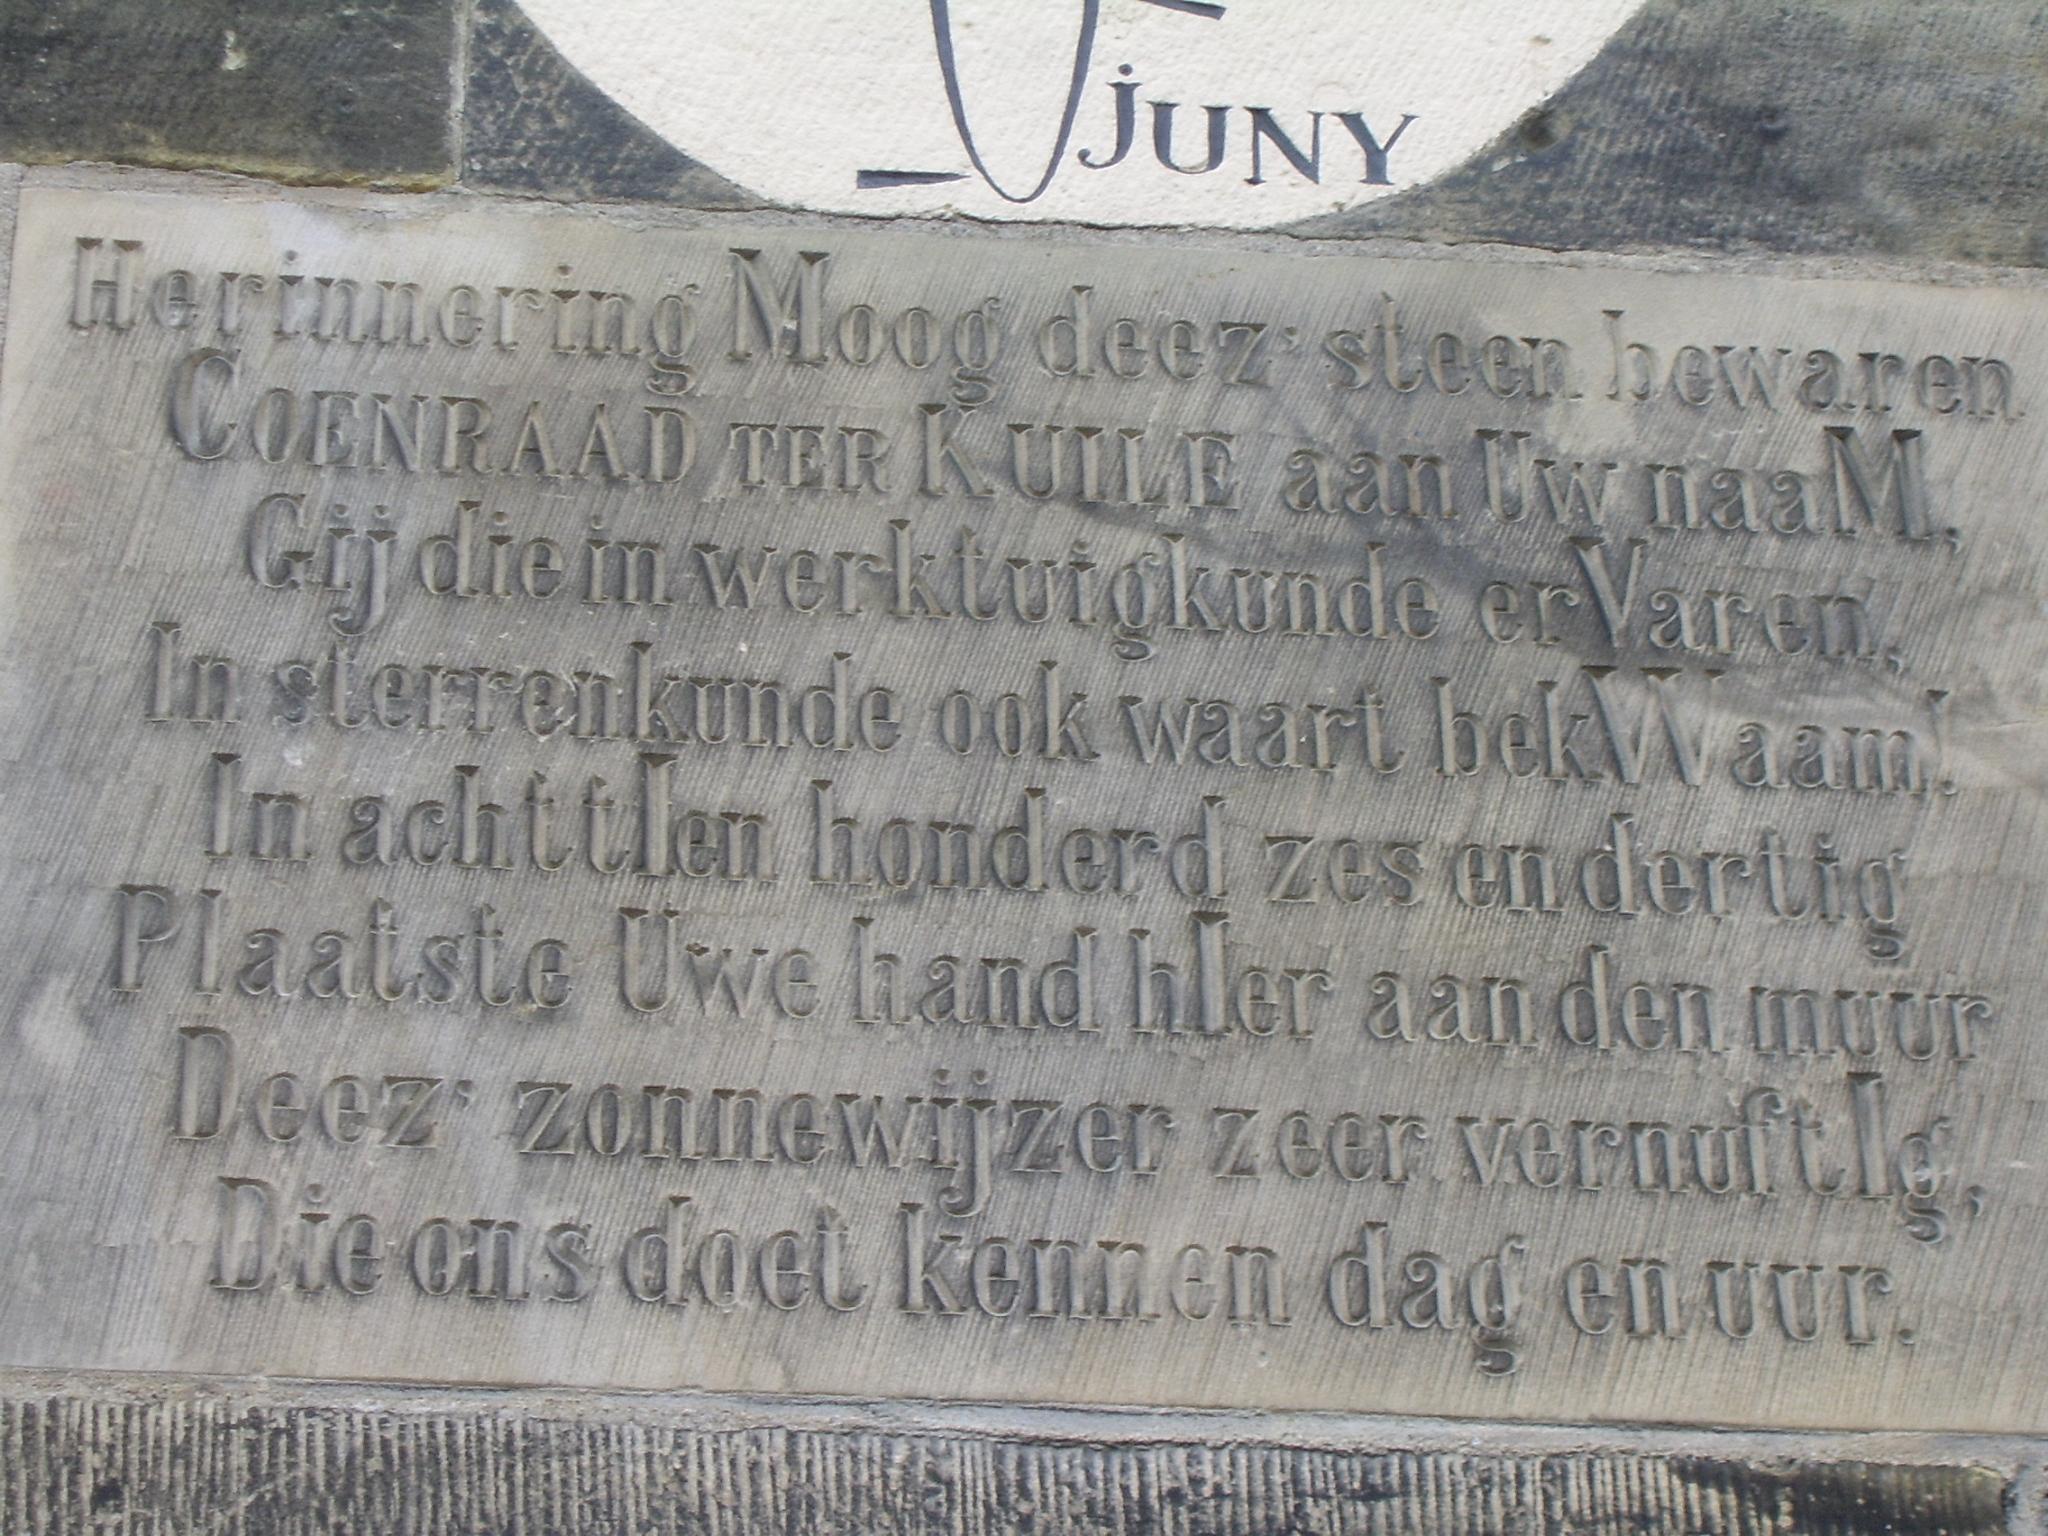 JUNY
Herinnering Moog deez' steen bewaren
COENRAAD TER KUILE aan Uw naaM,
Gij die in werktuigkunde erVaren,
In sterrenkunde ook waart bekWaam!
In achttIen honderd zes en dertig
Plaatste Uwe hand hIer aan den muur
Deez' zonnewijzer zeer vernuftIg,
Die ons doet kennen dag en uur.